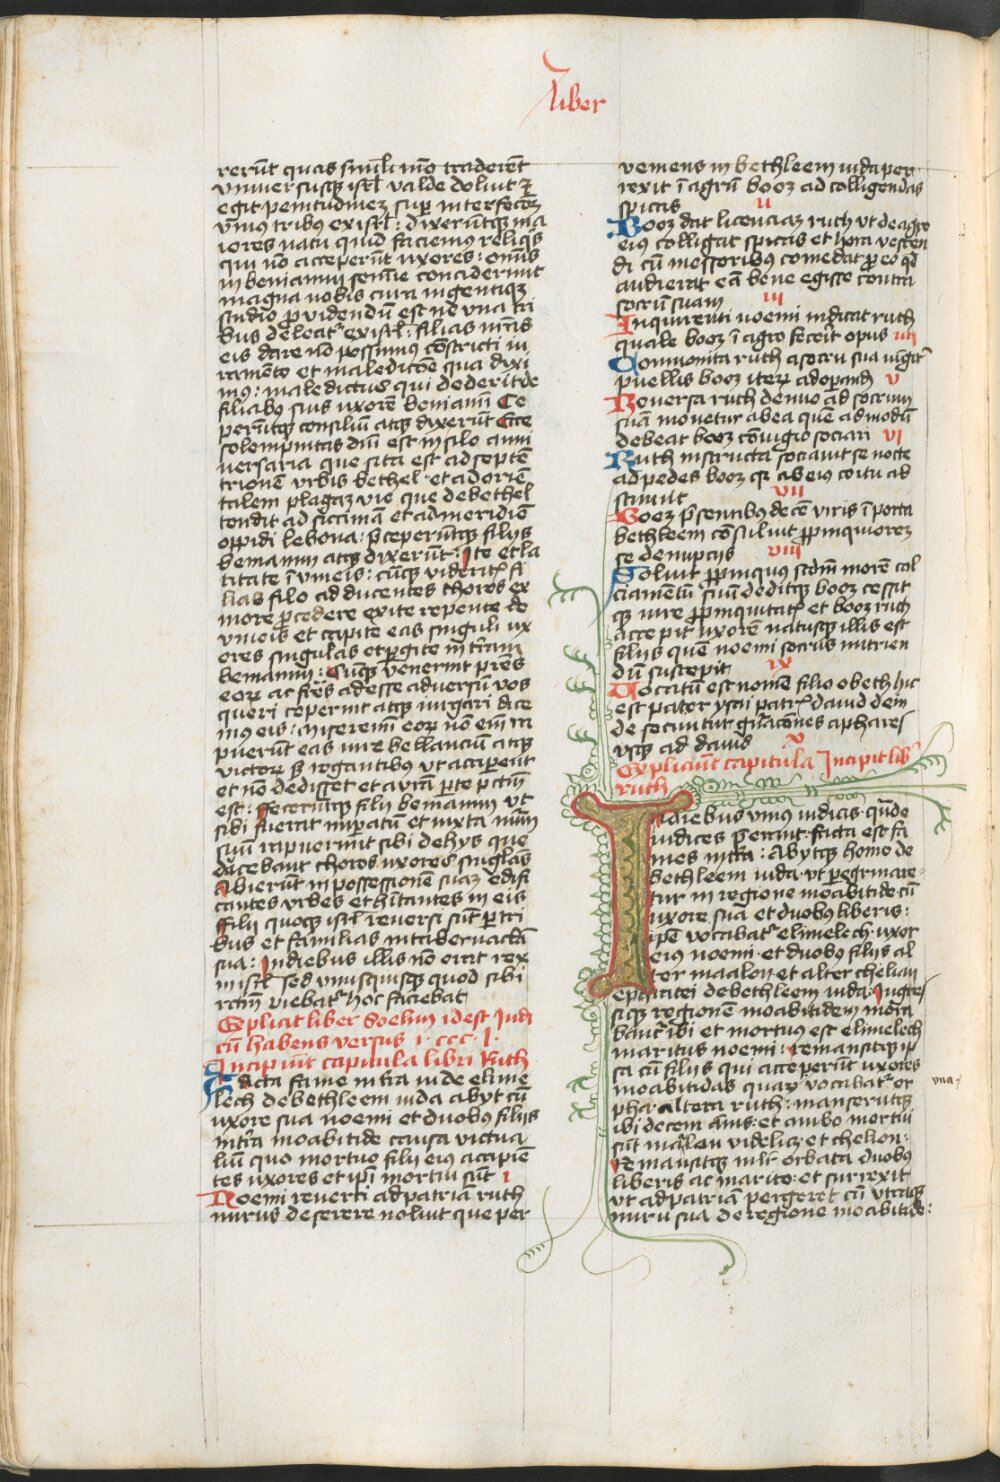 Liber
rerūt quas simili mō traderent
Vniuersusqȝ isrl̄ valde doluit ⁊
egit penitudinez suꝑ interfectōe
vnius tribus ex isrl̄ : dixerūtqȝ ma
iores natu quid faciemus reliqͥs
qui nō acceperūt uxores : omēs
in beniamin semīe conciderunt
magna nobis cura ingentiqȝ
studio ꝓvidendū est ne vna tri
bus deleatᷣ ex isrl̄ : filias nr̄as
eis dare nō possumus cōstricti iu
ramēto et maledictōe qua dixi
mꝰ : maledictus qui dederit de
filiabꝰ suis uxorē beniamī Ce
perūtqȝ consiliū atqȝ dixerūt Ecce
solempnitas dn̄i est in silo anni
uersaria que sita est ad septē
trionē vrbis bethel · et ad oriē
talem plagaz vie que de bethel
tendit ad siccimā et ad meridiē
oppidi lebona : p̄ceperūtqȝ filijs
beniamin atqȝ dixerūt : Ite et la
titate ī vineis : cūqȝ videritꝭ fi
lias silo ad ducentes choros ex
more ꝓcedere exite repente de
vineis et capite eas singuli ux
ores singulas et ꝑgite in t̄ram
beniamin : Cūqȝ venerint pr̄es
eorꝝ ac fr̄es adesse adversū vos
queri ceperint atqȝ iurgari dice
mus eis : miseremī eorꝝ nō em̄ ra
puerūt eas iure bellanciū atqȝ
victorꝝ sꝫ rogantibꝰ ut acciperent
et nō dedisset et a vr̄a ꝑte pctm̄
est : ffecerūtqȝ filij beniamin ut
sibi fuerat imperatū et iuxta nūm
suū rapuerunt sibi de hijs que
ducebant choros uxores singl̄as
Abierūt in possessionē suaz edifi
cantes vrbes et hītantes in eis
ffilij quoqȝ isrl̄ reuersi sūt ꝑ tri
bus et familias in tabernac̄la
sua : In diebus illis nō erat rex
in isrl̄ sed vnusquisqȝ quod sibi
rectū videbatᷣ hoc faciebat
Explicit liber Soetim idest Iudi
cū habens versus i · ccc · l ·
Incipiūt capitula libri Ruth
Facta fame in t̄ra iude elime
lech de bethleem iuda abijt cū
uxore sua noemi et duobꝰ filijs
in t̄ra moabitide causa victua
liū quo mortuo filij eiꝰ accipiē
tes uxores et ip̄i mortui sūt i
Noemi reuerti ad patriā ruth
nurus deserere noluit que per
veniens in bethleem iuda per
rexit ī agrū booz ad colligendas
spicas ii
Booz dat licenciaz ruth ut de agro
eiꝰ colligat spicas et hora vescen
di cū messoribꝰ comedat ꝓ eo qđ
audierat eā bene egisse contra
socrū suam iii
Inquirenti noemi indicat ruth
quale booz ī agro fecerit opus iiii
Commonita ruth a socru sua iūgit
puellis booz iterꝝ ad operandū v
Reuersa ruth denuo ad socrum
suā monetur ab ea quē ad modū
debeat booz cōiugio sociari vi
Ruth instructa sociauit se nocte
ad pedes booz qͥ ab eiꝰ coitu ab
stinuit vii
Booz p̄sentibꝰ decē viris ī porta
bethleem cōsuluit ꝓpinquiorez
se de nuptijs viii
Soluit ꝓpinquꝰ scd̄m morē cal
ciamētū suū deditqȝ booz cessit
qȝ iure ꝓpinquitatꝭ et booz ruth
accepit uxorē natusqȝ illis est
filius quē noemi socrus nutrien
dū suscepit ix
Vocatū est nomē filio obeth hic
est pater ysai patrꝭ dauid dein
de secuntur gn̄acōnes a phares
vsqȝ ad dauid x
Expliciūt capitula Incipit libͬ
ruth
In diebus vniꝰ iudicis · qn̄do
iudices p̄erant · facta est fa
mes in t̄ra : Abijtqȝ homo de
bethleem iuda · ut peregrinare
tur in regione moabitide cū
uxore sua et duobꝰ liberis :
ip̄e vocabatᷣ elimelech · uxor
eiꝰ noemi · et duobꝰ filijs al
ter maalon · et alter chelian
ephratei de bethleem iuda : Ingres
siqȝ regionē moabitidem mora
bantᷣ ibi et mortuꝰ est elimelech
maritus noemi : remansitqȝ ip̄
sa cū filijs qui acceperūt uxores
moabitidas quaꝝ vocabatᷣ or
pha · altera ruth : manserūtqȝ
ibi decem ānis · et ambo mortui
sūt maalon videlicꝫ et chelion :
Remansitqȝ mlr̄ orbata duobꝰ
liberis ac marito · et surrexit
ut ad patriā pergeret cū utraqȝ
nuru sua de regione moabitide :
vna